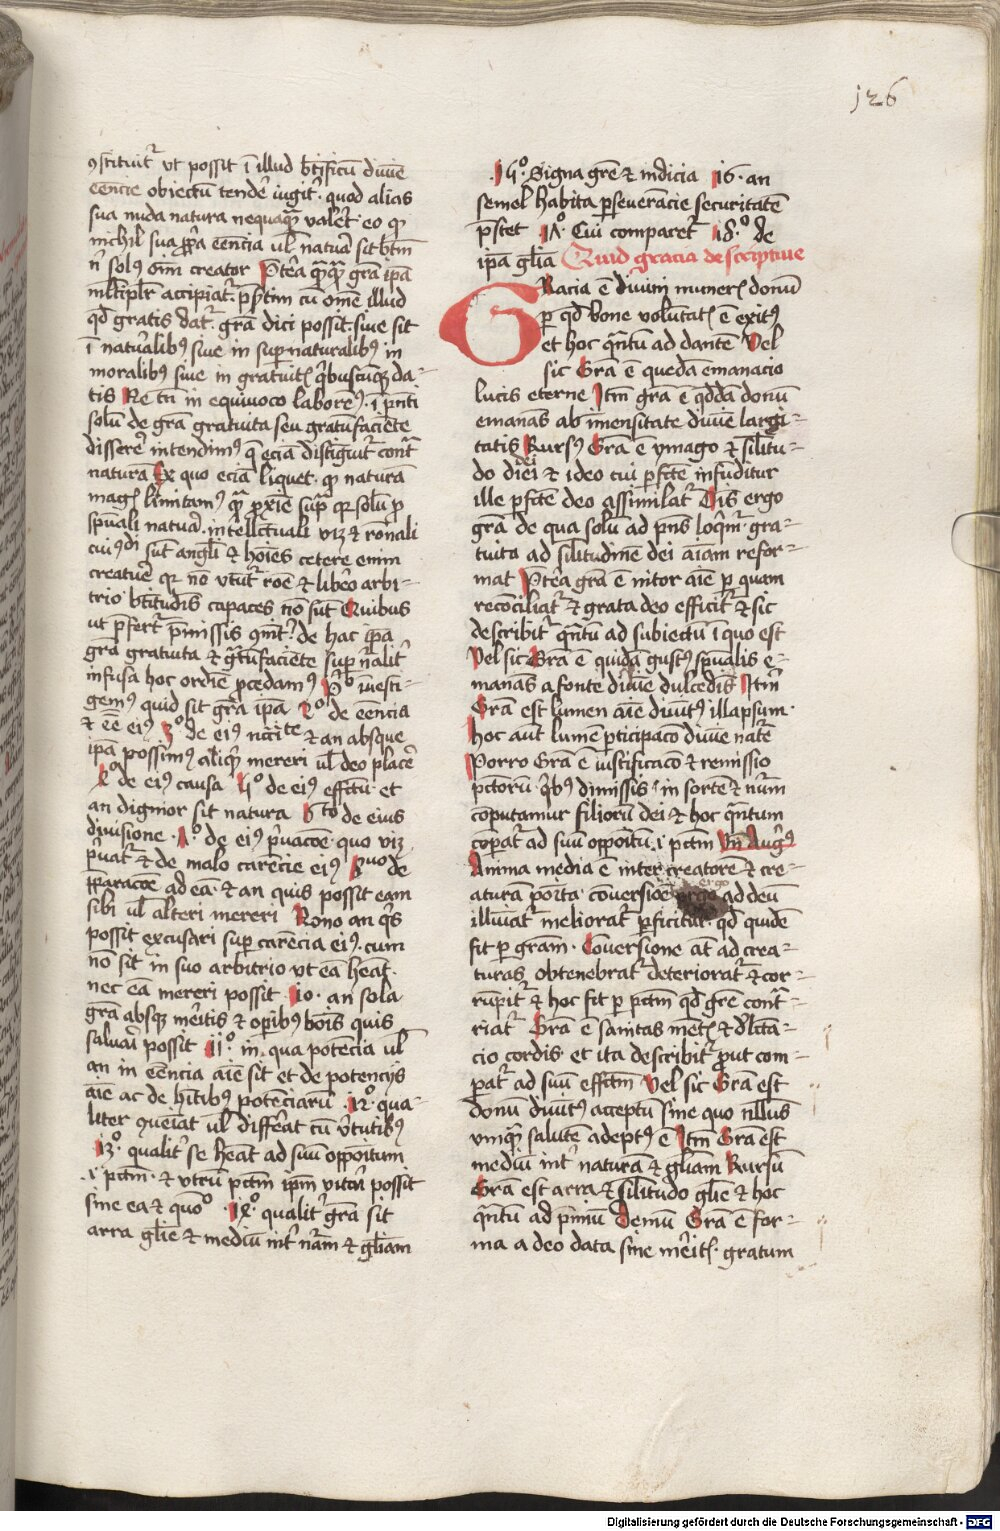 126
ꝯstituit᷑ ut possit ī illud bt̄ificū diuīe
eēncie obiectū tende᷑ iugit᷑. quod alias
sua nuda natura nequaqȝ valet. eo ꝙ
nichil sua ꝓp̄a eēncia ul̄ natuᷓ sit bt̄m
n̄ solꝰ om̄ creator P̄tea qᷓqȝ gr̄a ip̄a
ml̄tiplr̄ accipiat᷑. p̄s̄tim cū om̄e illud
qd̄ gratis dat᷑. gr̄a dici possit. siue sit
ī nat᷑alibꝰ siue in suꝑnaturalibꝰ in
moralibꝰ siue in gratuitꝭ qͥbuscūqȝ da-
tis Ne tn̄ in equiuoco laborēꝰ. ī pn̄ti
solū de gr̄a gratuita seu gratūfaciēte
dissere᷑ intendimꝰ q̄ ecia distiguit᷑ contᷓ
naturā Ex quo ecia liquet. ꝙ naturā
magꝭ limitamꝰ qᷓ ꝓxīe supᷓ qr solū ꝓ
sp̄uali natuᷓ. intellc̄tuali vizȝ et rōnali
cuiꝰdī sūt angl̄i et hoīes cetere enim
creatur̄e qr nō utūt᷑ rōe et libero arbi-
trio bt̄itudīs capaces nō sūt Quibus
ut ꝑfert᷑ p̄missis qm̄t᷑. de hac ip̄a
gr̄a gratuita et gᷓtūfaciēte suꝑ n̄alit᷑
infusa hoc ordīe ꝓcedamꝰ pͦ inuesti-
gemꝰ quid sit gr̄a ip̄a 2ͦ de eēncia
et eē eiꝰ 3ͦ de eiꝰ nc̄cite et an absque
ip̄a possimꝰ aliqͥ mereri ul̄ deo place᷑
4ͦ de eiꝰ causa 5ͦ de eiꝰ effc̄tu. et
an dignior sit natura 6to de eius
diuisione. 7ͦ de eiꝰ p̄uacōe. quo viz
p̄uat᷑ et de malo carēcie eiꝰ 8uo de
p̄paracōe ad ea. et an quis possit eam
sibi ul̄ alteri mereri Nono an qͥs
possit excusari suꝑ carēcia eiꝰ. cum
nō sit in suo arbitrio ut eā hēat.
nec eā mereri possit 10. an sola
gr̄a absqȝ meritis et oꝑibꝰ boīs quis
saluari possit 11ͦ in qua potēcia ul̄
an in eēncia aīe sit et de potencijs
aīe ac de hītibꝰ potēciarū. 12ͦ qua-
liter queīat ul̄ differat cū v᷑tutibꝰ
13ͦ qualit᷑ se hēat ad suū oppoitum
.i. pc̄tm̄. et utrū pc̄tm̄ ip̄m vitari possit
sine ea et quoͦ. 14ͦ. qualit᷑ gr̄a sit
arra glīe et mediū int᷑ n̄ram et gl̄iam
.15ͦ. Signa gr̄e et indicia 16. an
semel habita ꝑseuerācie securitatē
p̄stet 17ͦ. Cui comparet᷑ 18.ͦ de
ip̄a gl̄ia Quid gracia descriptiue
GRacia ē diuini munerꝭ donū
ꝑ qd̄ bone volūtatꝭ ē exitꝰ
et hoc qᷓntū ad dantē Vel
sic Gr̄a ē quedā emanacio
lucis eterne Itm̄ gr̄a ē qd̄dā donū
emanās ab īmensitate diuīe largi-
tatis Rursꝰ Gr̄a ē ymago et sil̄itu-
do dei et ideo cui ꝑfc̄te infūditur
ille ꝑfc̄te deo assimilat᷑ Oīs ergo
gr̄a de qua solū ad pn̄s loqͥm᷑. gra-
tuita ad sil̄itudinē dei aīam refor-
mat P̄tea gr̄a ē nitor aīe ꝑ quam
recōciliat᷑ et grata deo efficit᷑ et sic
describit᷑ qᷓntū ad subiectū ī quo est
Vel sic Gr̄a ē quidā gustꝰ sp̄ualis e-
manās a fonte diuīe dulcedīs Itm̄
Gr̄a est lumen aīe diuītꝰ illapsum.
hoc aūt lumē ꝑticipacō diuīe nat᷑e
Porro Gr̄a ē iustificacō et remissio
pc̄torū qͥbꝰ dimissis in sortē et nūm
cōputamur filiorū dei et hoc qᷓntum
cōꝑat᷑ ad suū oppoitū .i. pc̄tm̄ Vn̄ Augꝰ
Anima media ē inter creatorē et cre-
aturā poīta. cōuersiōe ergo ad deū
illuīat᷑ meliorat᷑ ꝑficitur. qd̄ quidē
fit ꝑ gram. Cōuersione at̄ ad crea-
turas obtenebrat᷑ deteriorat᷑ et cor-
rūpit᷑ et hoc fit ꝑ pc̄tm̄ qd̄ gr̄e contᷓ-
riat᷑ Gr̄a ē sanitas mētꝭ et dl̄cta-
cio cordis. et ita describit᷑ ꝓut com-
ꝑat᷑ ad suū effc̄tm̄ Vel sic Gr̄a est
donū diuītꝰ acceptū sine quo nl̄lus
vnqȝ salutē adeptꝰ ē Itm̄ Gr̄a est
mediū int᷑ naturā et gl̄iam Rursū
Gr̄a est arra et sil̄itudo glīe et hoc
qᷓntū ad p̄miū Demū Gr̄a ē for-
ma a deo data sine meritꝭ. gratum
Digitalisierung gefördert durch die Deutsche Forschungsgemeinschaft - DFG